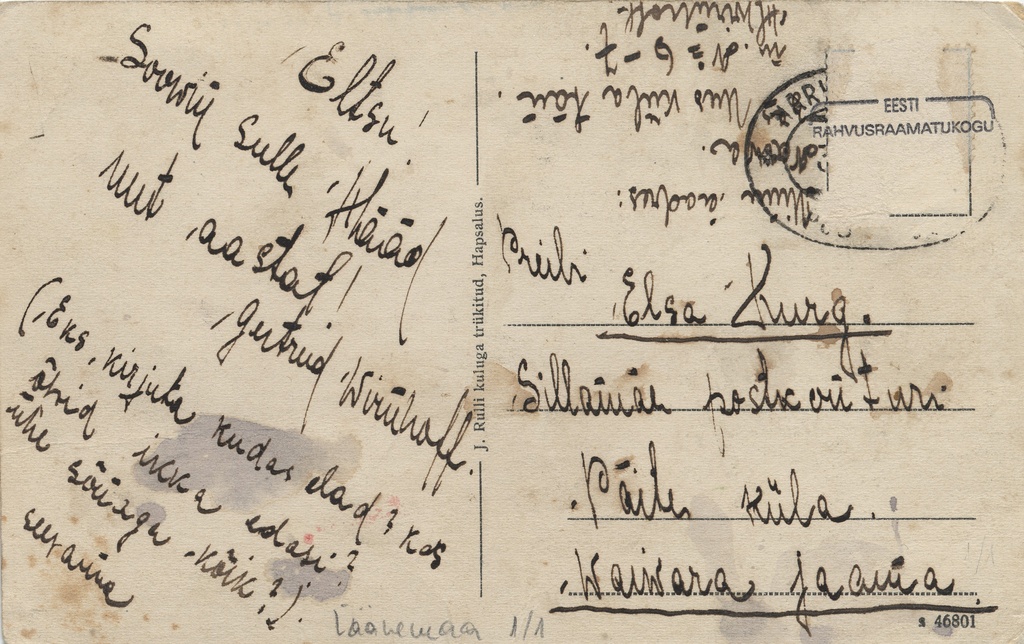 Eltsu!
Soowin Sulle Hääd
uut aastat!
Gertrud Wirühoff.
(Eks kirjuta kudas elad? kas
õpid ikka edasi?
ühe sõnaga kõik?!)
Minu aadres:
Narva.
Uus küla tän.
m. № 6-7.
EESTI
RAHVUSRAAMATUKOGU
Preili
Elsa Kurg.
Sillamäe postkontori
Päite küla.
Waiwara jaama
J. Ruili kuluga trükitud, Hapsalus.
Läänemaa 1/1
1/1
a 46801